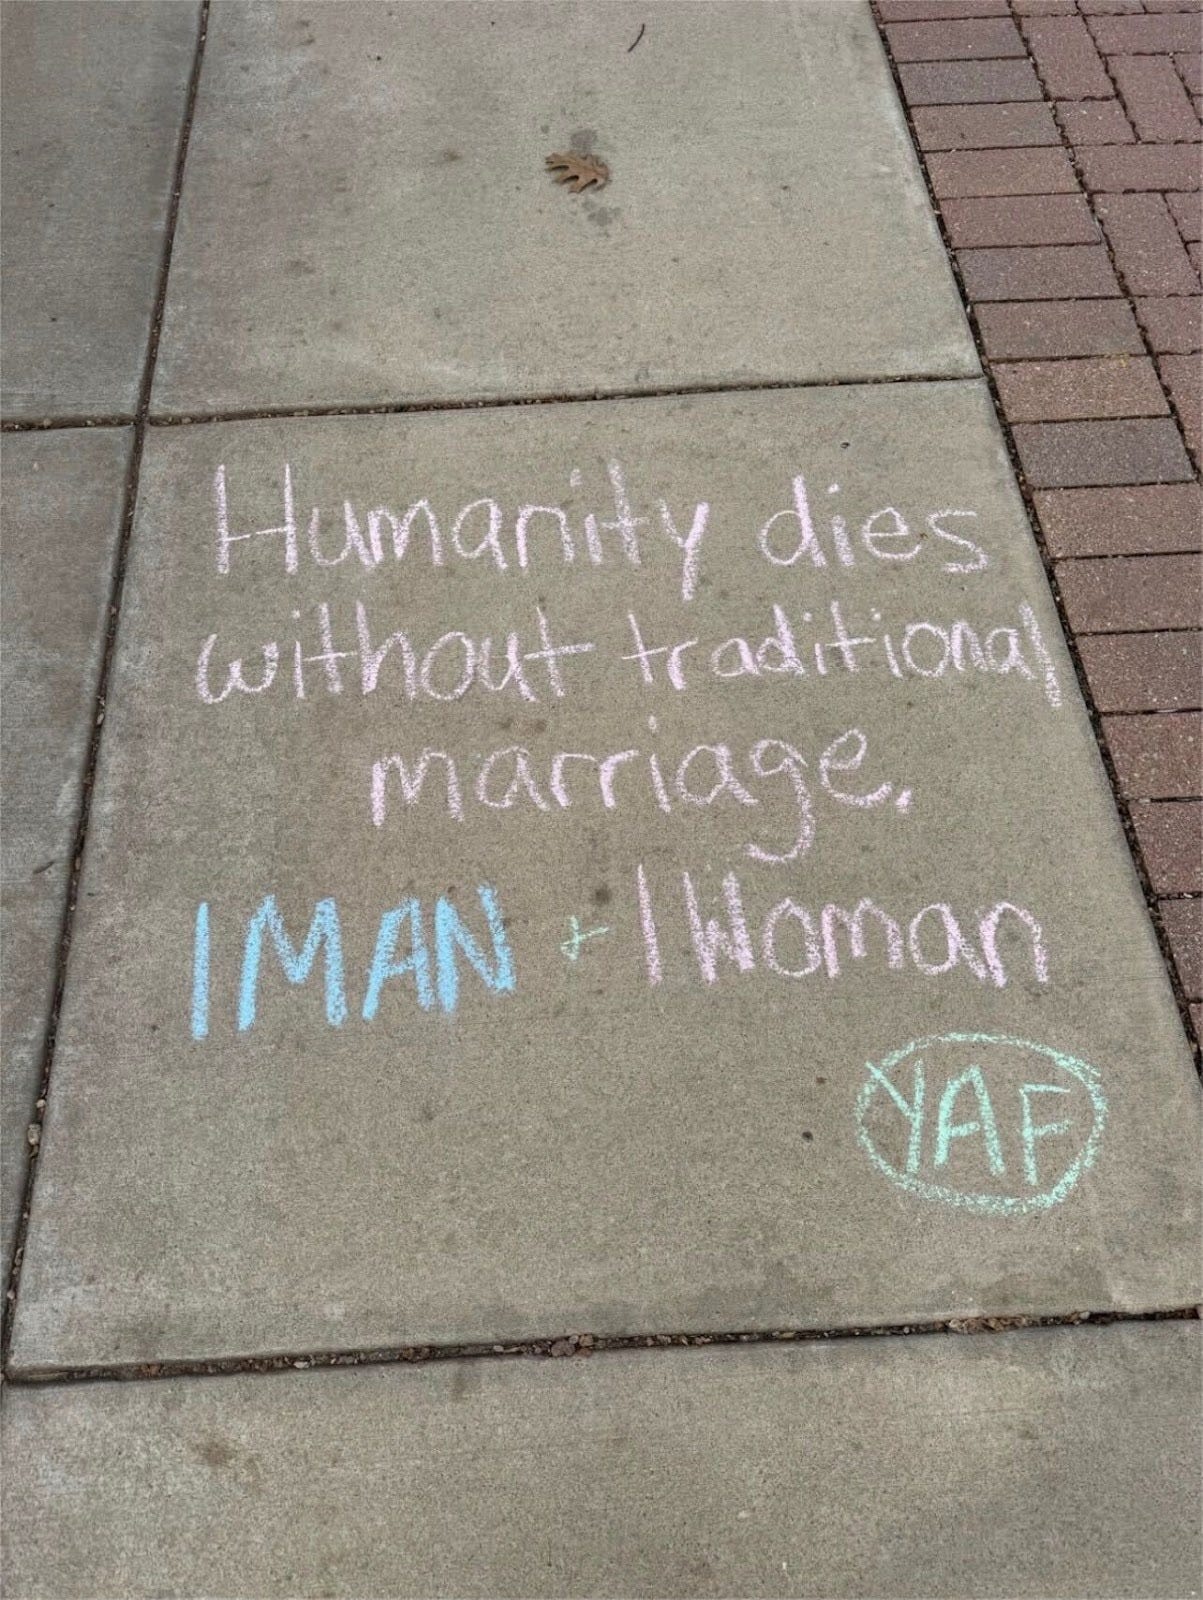 Humanity dies
without traditional
marriage.
1 MAN + 1 Woman
YAF